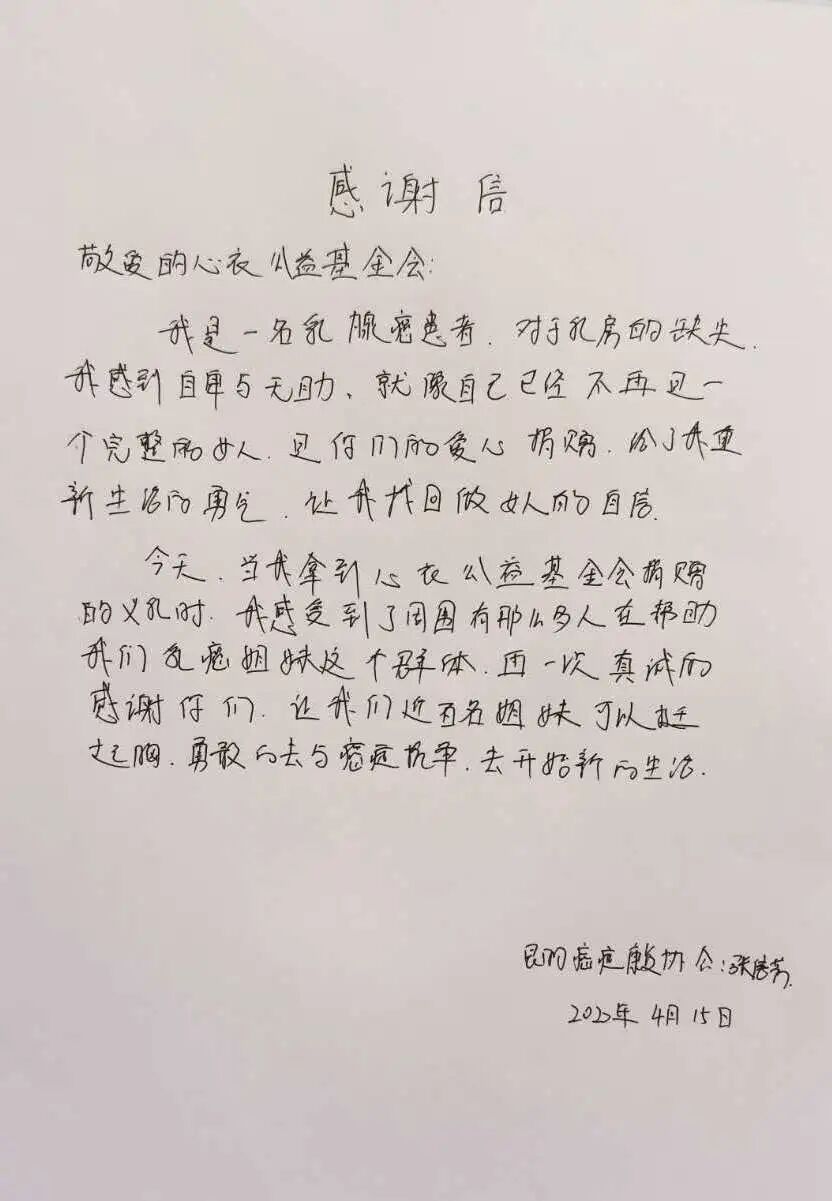 感谢信
敬爱的心衣公益基金会:
我是一名乳腺癌患者.对于乳房的缺失.
我感到自卑与无助、就像自己已经不再是一
个完整的女人.是你们的爱心捐赠.给了我重
新生活的勇气.让我找回做女人的自信.
今天.当我拿到心衣公益基金会捐赠
的义乳时.我感受到了周围有那么多人在帮助
我们乳癌姐妹这个群体.再一次真诚的
感谢你们.让我们近百名姐妹可以挺
起胸.勇敢的去与癌症抗争.去开始新的生活.
癌症康复协会:张
4月15日